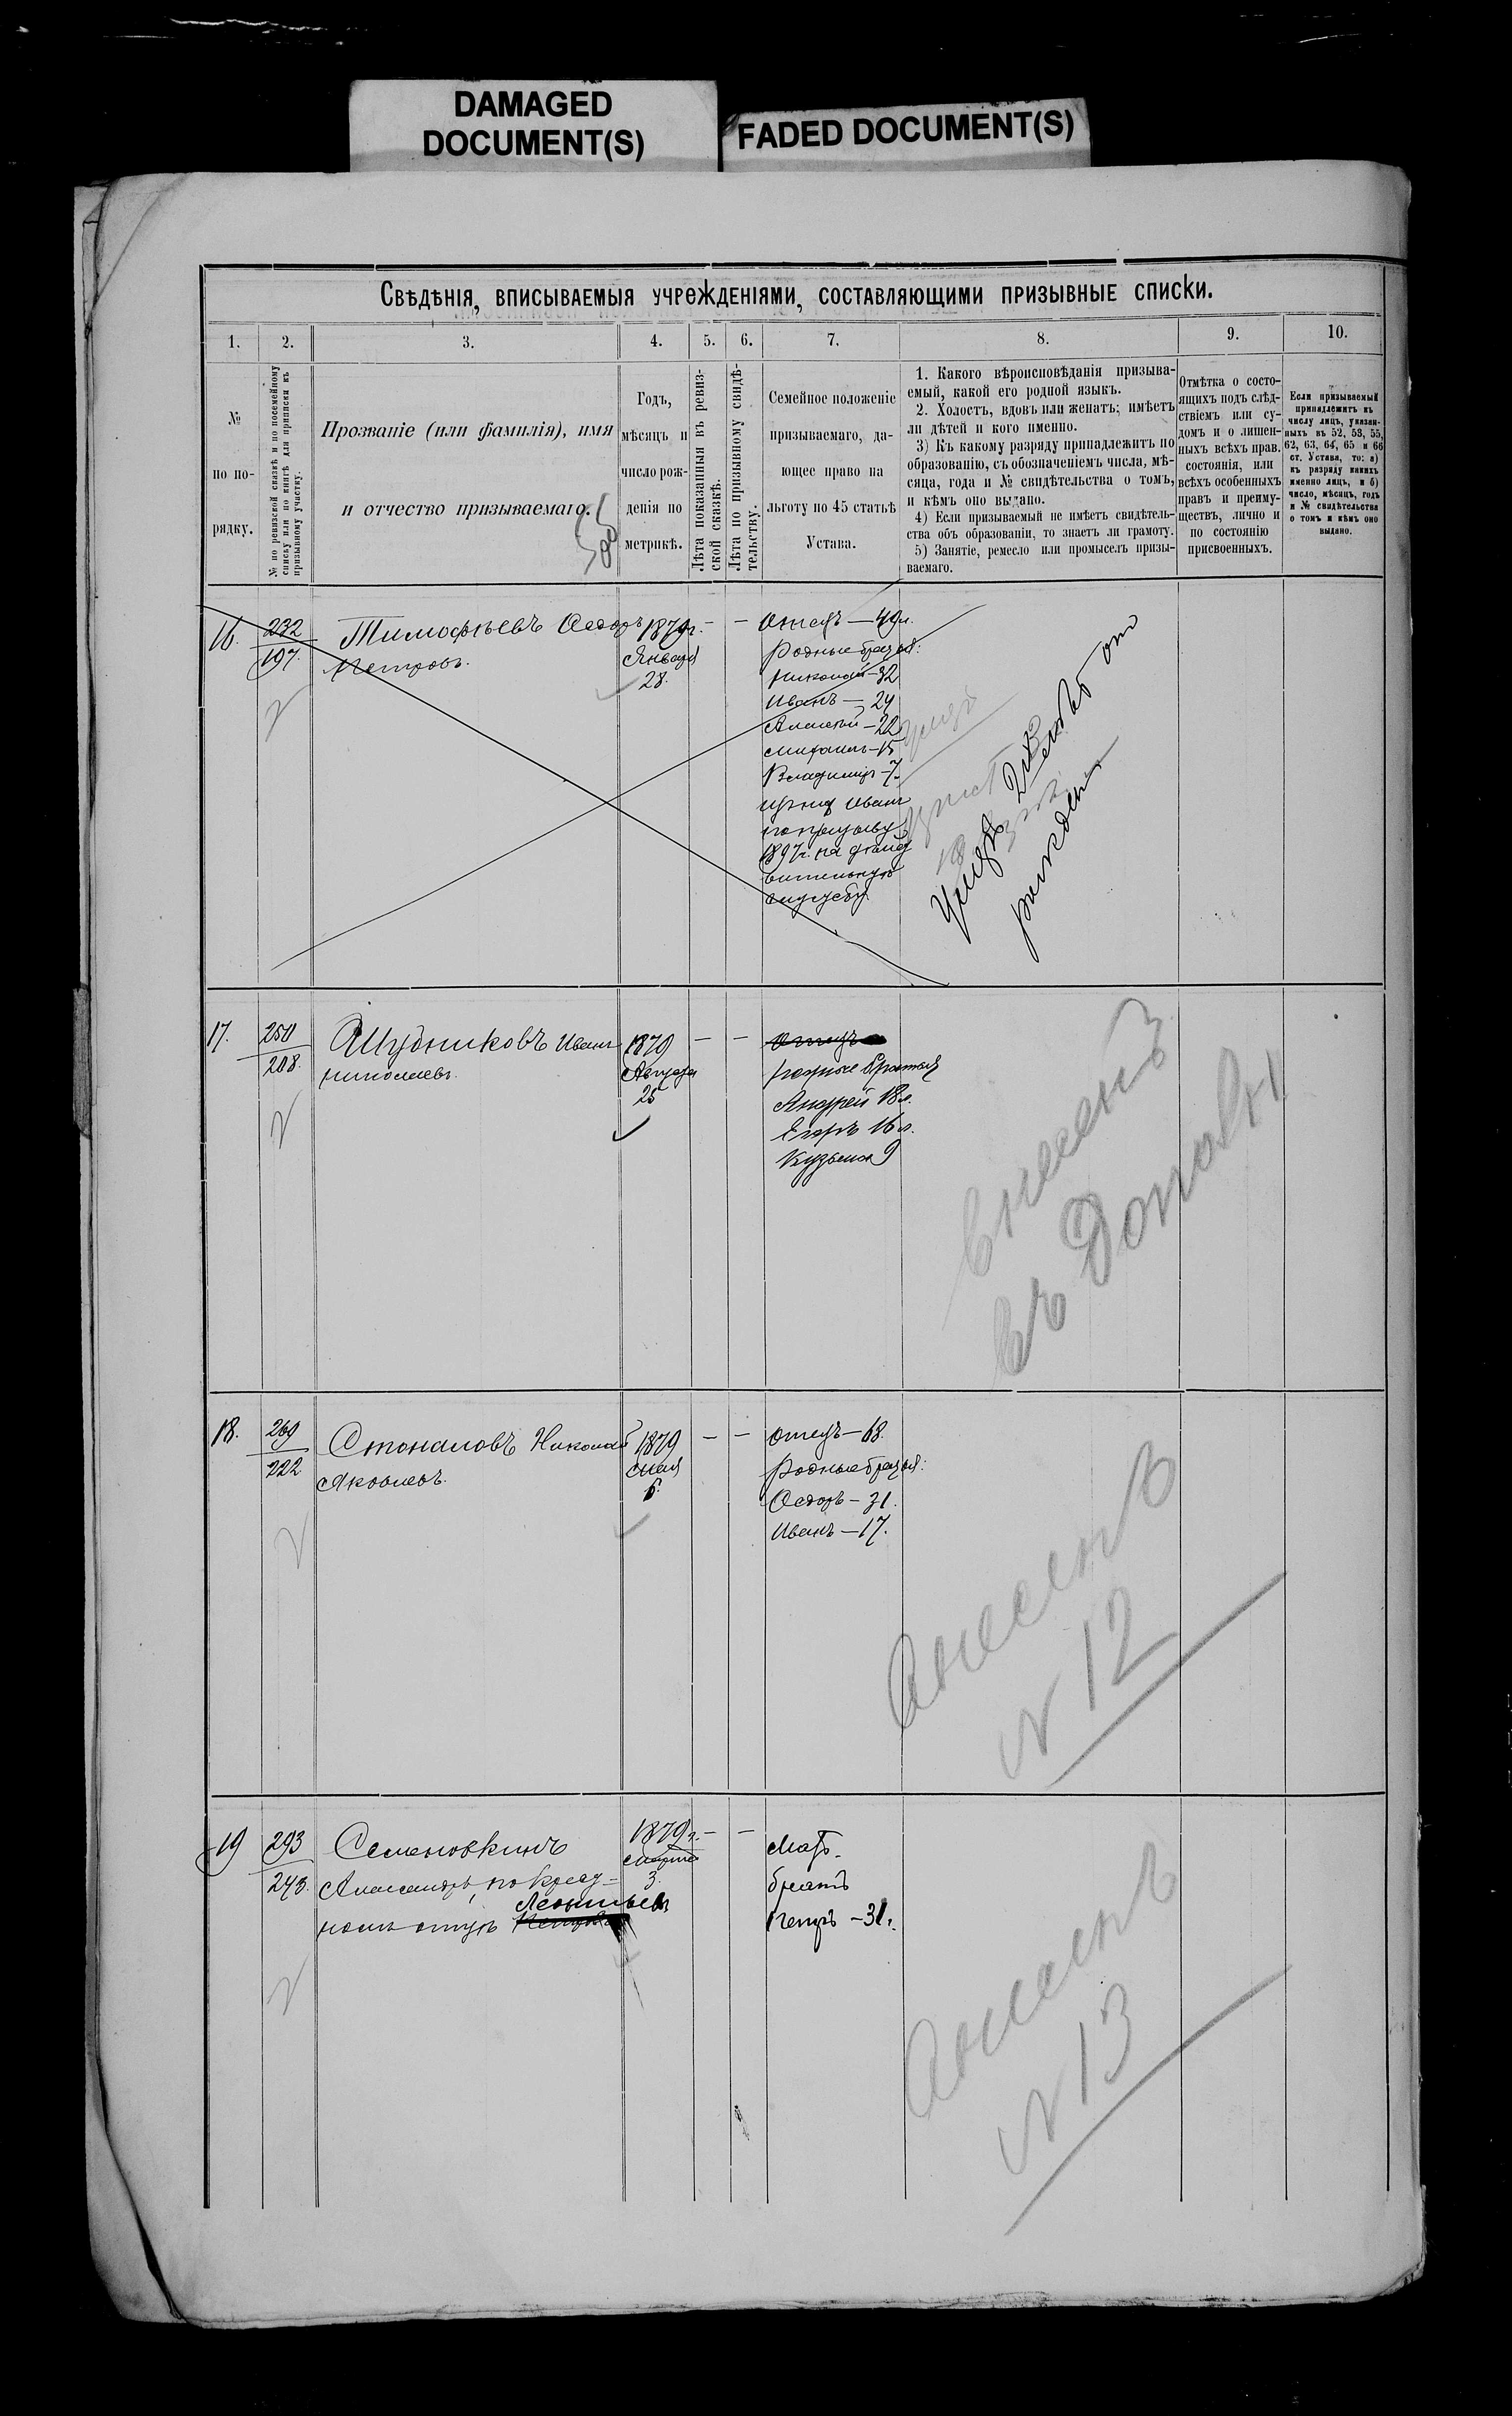 DAMAGED
DOCUMENT(S)
FADED DOCUMENT(S)
Свѣдѣнія, вписываемыя учрежденіями, составляющими призывные списки.
1.
2.
3.
4.
5.
6.
7.
8.
9.
10.
№
по по-
рядку.
№ по ревизской сказкѣ и по посемейному
списку или по книгѣ для приписки къ
призывному участку.
Прозваніе (или фамилія), имя
и отчество призываемаго.
Годъ,
мѣсяцъ и
число рож-
денія по
метрикѣ.
Лѣта показанныя въ ревиз-
ской сказкѣ.
Лѣта по призывному свидѣ-
тельству.
Семейное положеніе
призываемаго, да-
ющее право на
льготу по 45 статьѣ
Устава.
1. Какого вѣроисповѣданія призыва-
емый, какой его родной языкъ.
2. Холостъ, вдовъ или женатъ; имѣетъ
ли дѣтей и кого именно.
3) Къ какому разряду принадлежитъ по
образованію, съ обозначеніемъ числа, мѣ-
сяца, года и № свидѣтельства о томъ,
и кѣмъ оно выдано.
4) Если призываемый не имѣетъ свидѣтель-
ства объ образованіи, то знаетъ ли грамоту.
5) Занятіе, ремесло или промыселъ призы-
ваемаго.
Отмѣтка о состо-
ящихъ подъ слѣд-
ствіемъ или су-
домъ и о лишен-
ныхъ всѣхъ прав.
состоянія, или
всѣхъ особенныхъ
правъ и преиму-
ществъ, лично и
по состоянію
присвоенныхъ.
Если призываемый
принадлежитъ къ
числу лицъ, указан-
ныхъ въ 52, 53, 55,
62, 63, 64, 65 и 66
ст. Устава, то: а)
къ разряду какихъ
именно лицъ, и б)
число, мѣсяцъ, годъ
и № свидѣтельства
о томъ и кѣмъ оно
выдано.
16.
232
197.
Тимофѣевъ Ѳедоръ
Петровъ.
1879г.
Января
28.
— —
Отецъ — 49л.
Родные братья:
Николай — 32
Иванъ — 24
Алексѣй — 22
Михаилъ — 15
Владиміръ — 7.
Иванъ
по призыву
1897г. на
службу
Умеръ
отъ
рожденія
17.
250
208.
Иванъ
Николаевъ.
1879
Августа
25
— —
Отецъ
родные братья
Андрей 18л.
Егоръ 16л.
Кузьма 9
Внесенъ
въ
18.
269
222
Николай
Яковлевъ.
1879
Мая
6.
— —
Отецъ — 68.
Родные братья:
Ѳедоръ — 31.
Иванъ — 17.
Внесенъ
№ 12
19
293
243.
Семеновкинъ
Александръ, по крест-
ному отцу Петровъ
Леонтьевъ
1879г.
Марта
3.
— —
Мать
братъ
Петръ — 31г.
Внесенъ
№ 13